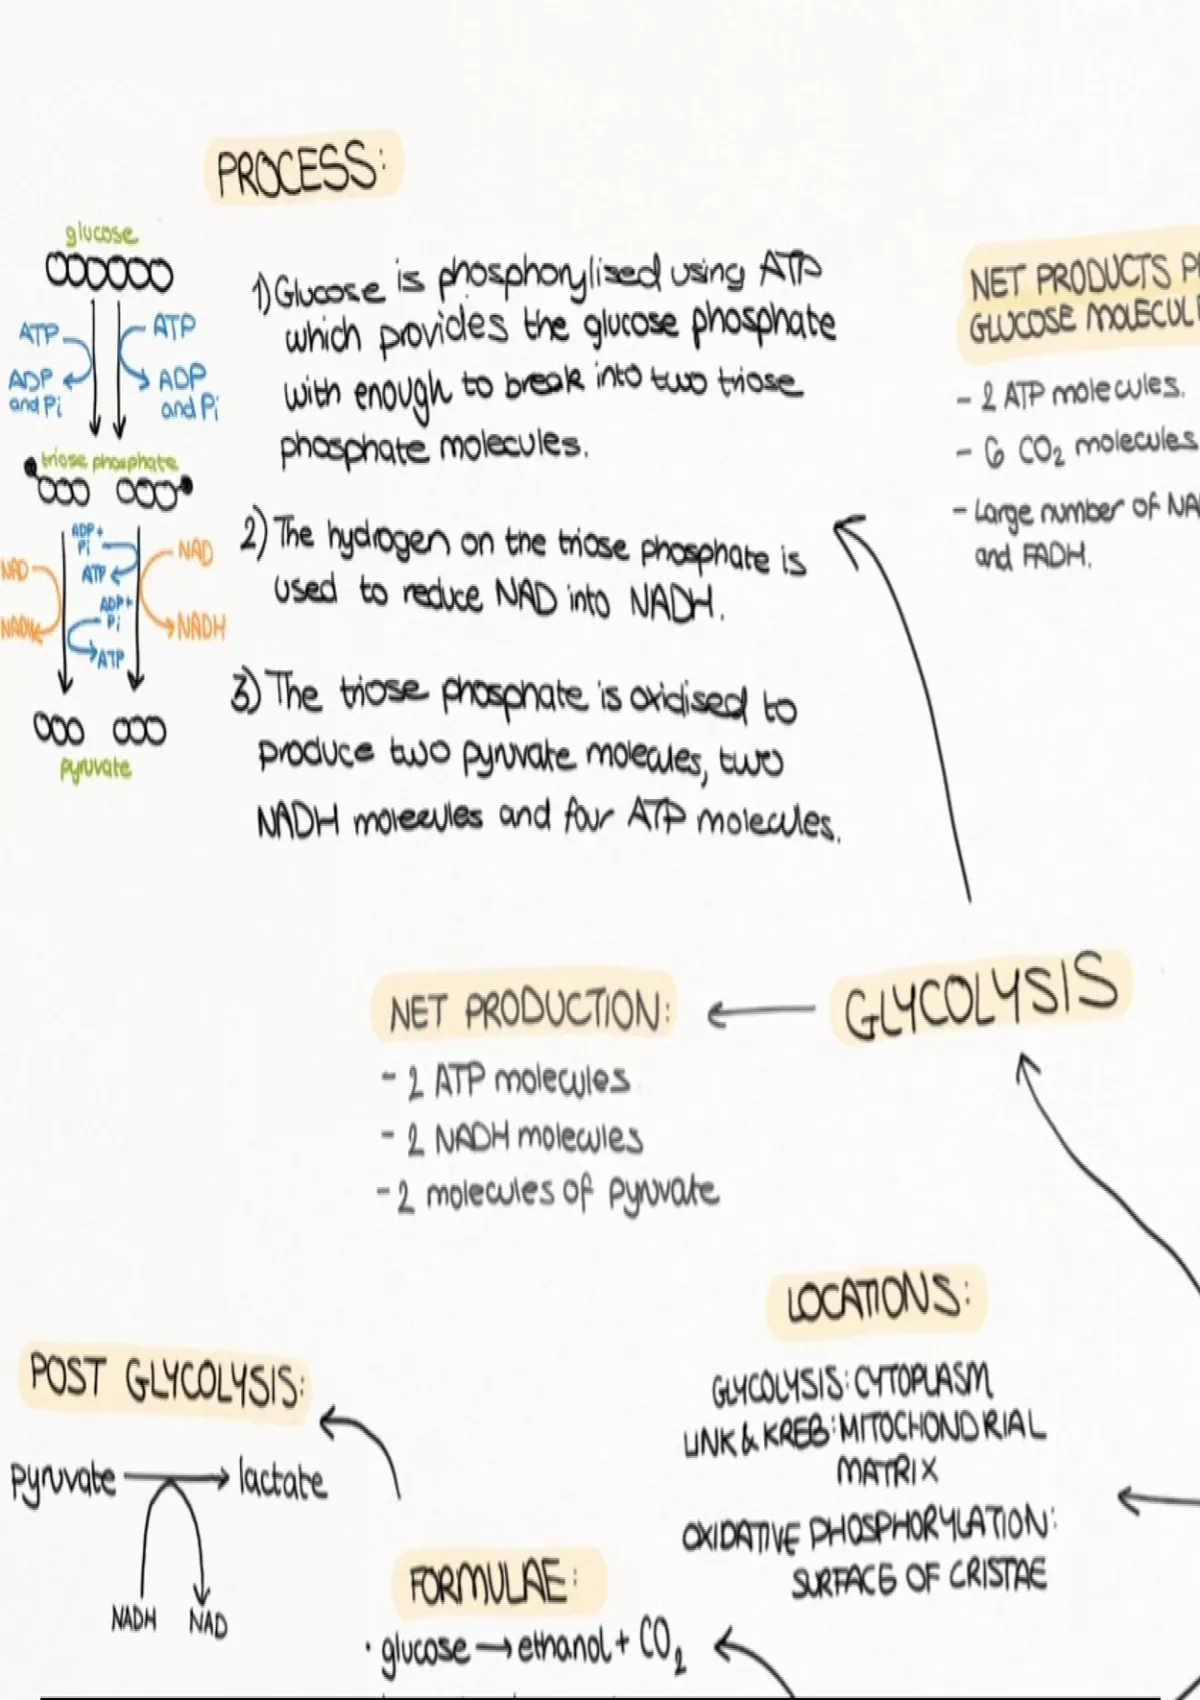 PROCESS:
glucose
ATP
ATP
ADP
and Pi
ADP
and Pi
triose phosphate
ADP+
Pi
ATP
NAD
NAD
ADP+
Pi
NADH
NADH
ATP
pyruvate
1) Glucose is phosphorylised using ATP
which provides the glucose phosphate
with enough to break into two triose
phosphate molecules.
2) The hydrogen on the triose phosphate is
used to reduce NAD into NADH.
3) The triose phosphate is oxidised to
produce two pyruvate molecules, two
NADH molecules and four ATP molecules.
NET PRODUCTS
GLUCOSE
- 2 ATP molecules.
- 6 CO2 molecules
- Large number of
and FADH.
GLYCOLYSIS
NET PRODUCTION:
- 2 ATP molecules
- 2 NADH molecules
- 2 molecules of pyruvate
LOCATIONS:
GLYCOLYSIS: CYTOPLASM
LINK & KREB: MITOCHONDRIAL
MATRIX
OXIDATIVE PHOSPHORYLATION:
SURFACE OF CRISTAE
POST GLYCOLYSIS:
pyruvate → lactate
NADH NAD
FORMULAE:
· glucose → ethanol + CO2